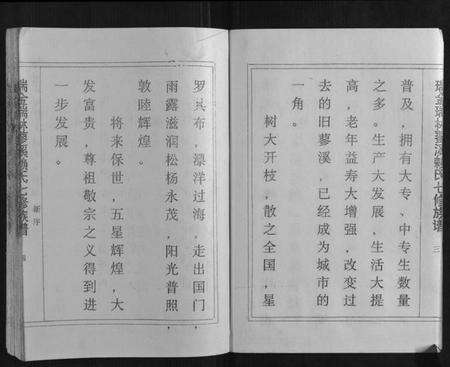 普及，拥有大专、中专生数量
之多。生产大发展、生活大提
高，老年益寿大增强，改变过
去的旧蓼溪，已经成为城市的
一角。
树大开枝，散之全国，星
瑞金瑞林蓼溪赖氏七修族谱
三
罗棋布，漂洋过海，走出国门，
雨露滋润松杨永茂，阳光普照，
敦睦辉煌。
将来保世，五星辉煌，大
发富贵，尊祖敬宗之义得到进
一步发展。
新序
四